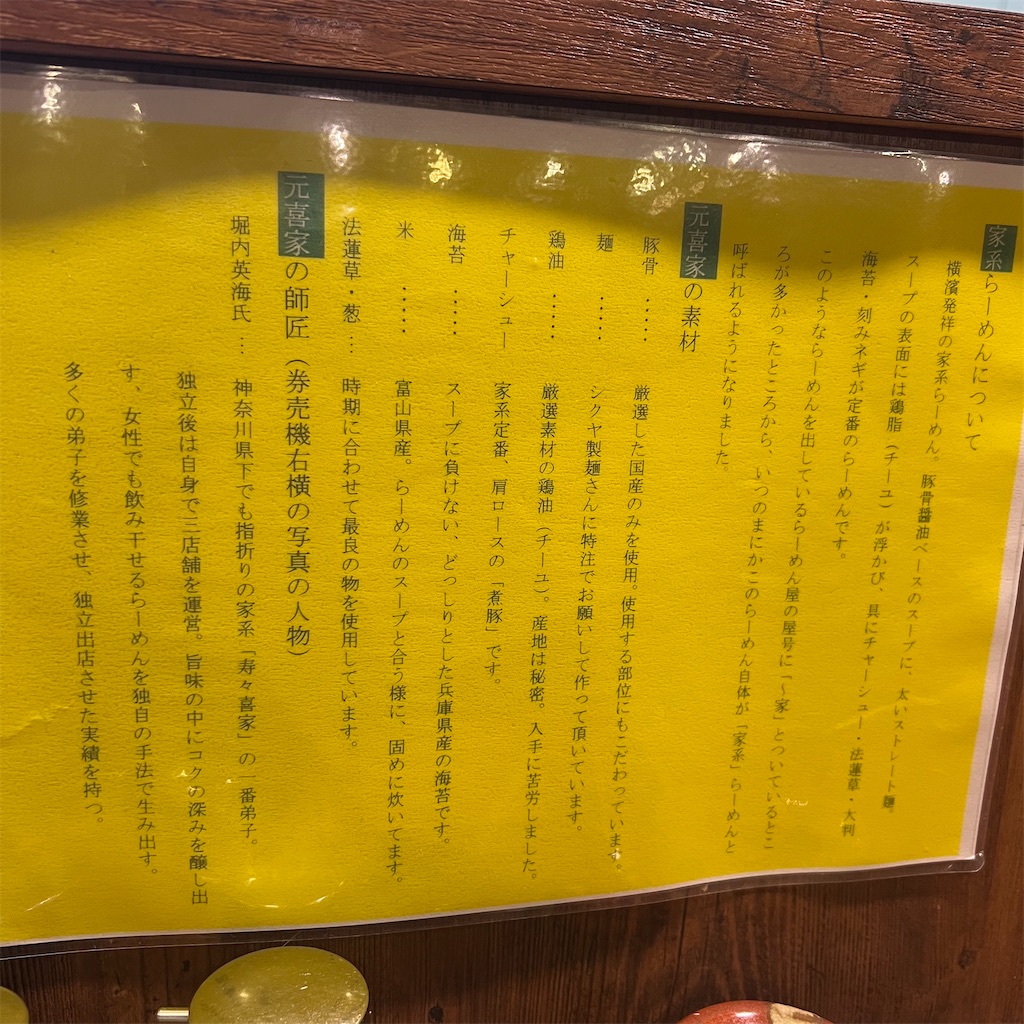 家系らーめんについて
横濱発祥の家系らーめん。豚骨醤油ベースのスープに、太いストレート麺。
スープの表面には鶏脂（チーユ）が浮かび、具にチャーシュー・法蓮草・大判
海苔・刻みネギが定番のらーめんです。
このようならーめんを出しているらーめん屋の屋号に「～家」とついているとこ
ろが多かったところから、いつのまにかこのらーめん自体が「家系」らーめんと
呼ばれるようになりました。
元喜家の素材
豚骨 ‥‥‥ 厳選した国産のみを使用。使用する部位にもこだわっています。
麺 ‥‥‥ シクヤ製麺さんに特注でお願いして作って頂いています。
鶏油 ‥‥‥ 厳選素材の鶏油（チーユ）。産地は秘密。入手に苦労しました。
チャーシュー 家系定番、肩ロースの「煮豚」です。
海苔 ‥‥‥ スープに負けない、どっしりとした兵庫県産の海苔です。
米 ‥‥‥ 富山県産。らーめんのスープと合う様に、固めに炊いてます。
法蓮草・葱 … 時期に合わせて最良の物を使用しています。
元喜家の師匠（券売機右横の写真の人物）
堀内英海氏 … 神奈川県下でも指折りの家系「寿々喜家」の一番弟子。
独立後は自身で三店舗を運営。旨味の中にコクの深みを醸し出
す、女性でも飲み干せるらーめんを独自の手法で生み出す。
多くの弟子を修業させ、独立出店させた実績を持つ。